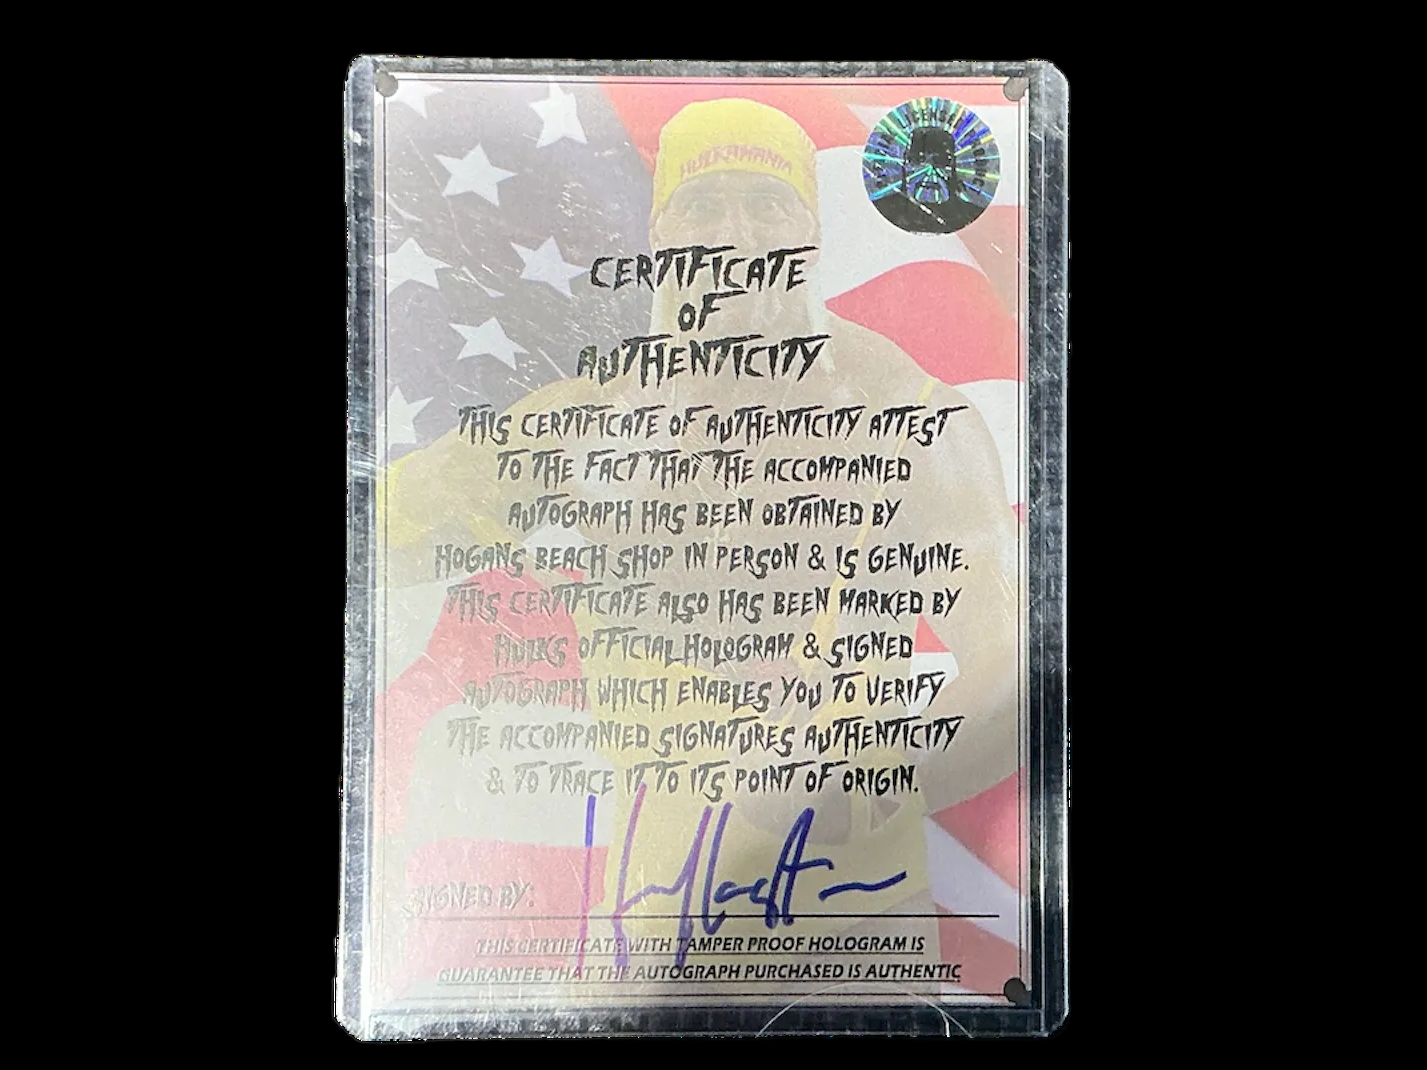 HULKAMANIA
OFFICIAL LICENSED PRODUCT
CERTIFICATE
OF
AUTHENTICITY
THIS CERTIFICATE OF AUTHENTICITY ATTEST
TO THE FACT THAT THE ACCOMPANIED
AUTOGRAPH HAS BEEN OBTAINED BY
HOGANS BEACH SHOP IN PERSON & IS GENUINE.
THIS CERTIFICATE ALSO HAS BEEN MARKED BY
HULKS OFFICIAL HOLOGRAM & SIGNED
AUTOGRAPH WHICH ENABLES YOU TO VERIFY
THE ACCOMPANIED SIGNATURES AUTHENTICITY
& TO TRACE IT TO ITS POINT OF ORIGIN.
SIGNED BY:
THIS CERTIFICATE WITH TAMPER PROOF HOLOGRAM IS
GUARANTEE THAT THE AUTOGRAPH PURCHASED IS AUTHENTIC